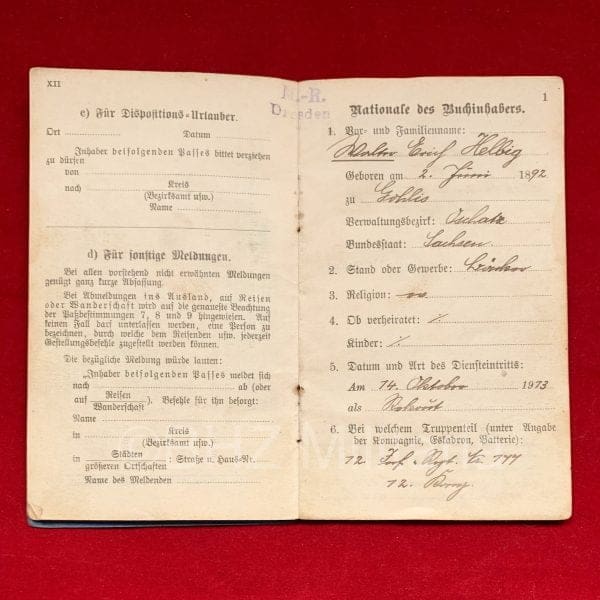 XII
c) Für Dispositions-Urlauber.
Ort Datum
Inhaber beifolgenden Passes bittet verziehen
zu dürfen
von
nach Kreis
(Bezirksamt usw.)
Name
d) Für sonstige Meldungen.
Bei allen vorstehend nicht erwähnten Meldungen
genügt ganz kurze Abfassung.
Bei Abmeldungen ins Ausland, auf Reisen
oder Wanderschaft wird auf die genaueste Beachtung
der Paßbestimmungen 7, 8 und 9 hingewiesen. Auf
keinen Fall darf unterlassen werden, eine Person zu
bezeichnen, durch welche dem Reisenden usw. jederzeit
Gestellungsbefehle zugestellt werden können.
Die bezügliche Meldung würde lauten:
„Inhaber beifolgenden Passes meldet sich
nach ab (oder
auf Reisen
Wanderschaft). Befehle für ihn besorgt:
Name
in Kreis
(Bezirksamt usw.)
in Städten
größeren Ortschaften : Straße u. Haus-Nr.
Name des Meldenden
M.-R.
Dresden
1
Nationale des Buchinhabers.
1. Vor- und Familienname:
Walter Erich Helbig
Geboren am 2. Juni 1892
zu Gohlis
Verwaltungsbezirk: Oschatz
Bundesstaat: Sachsen
2. Stand oder Gewerbe:
3. Religion: ev.
4. Ob verheiratet: %
Kinder: %
5. Datum und Art des Diensteintritts:
Am 14. Oktober 1913
als Rekrut
6. Bei welchem Truppenteil (unter Angabe
der Kompagnie, Eskadron, Batterie):
12. Inf. Regt. № 177
12. Komp.